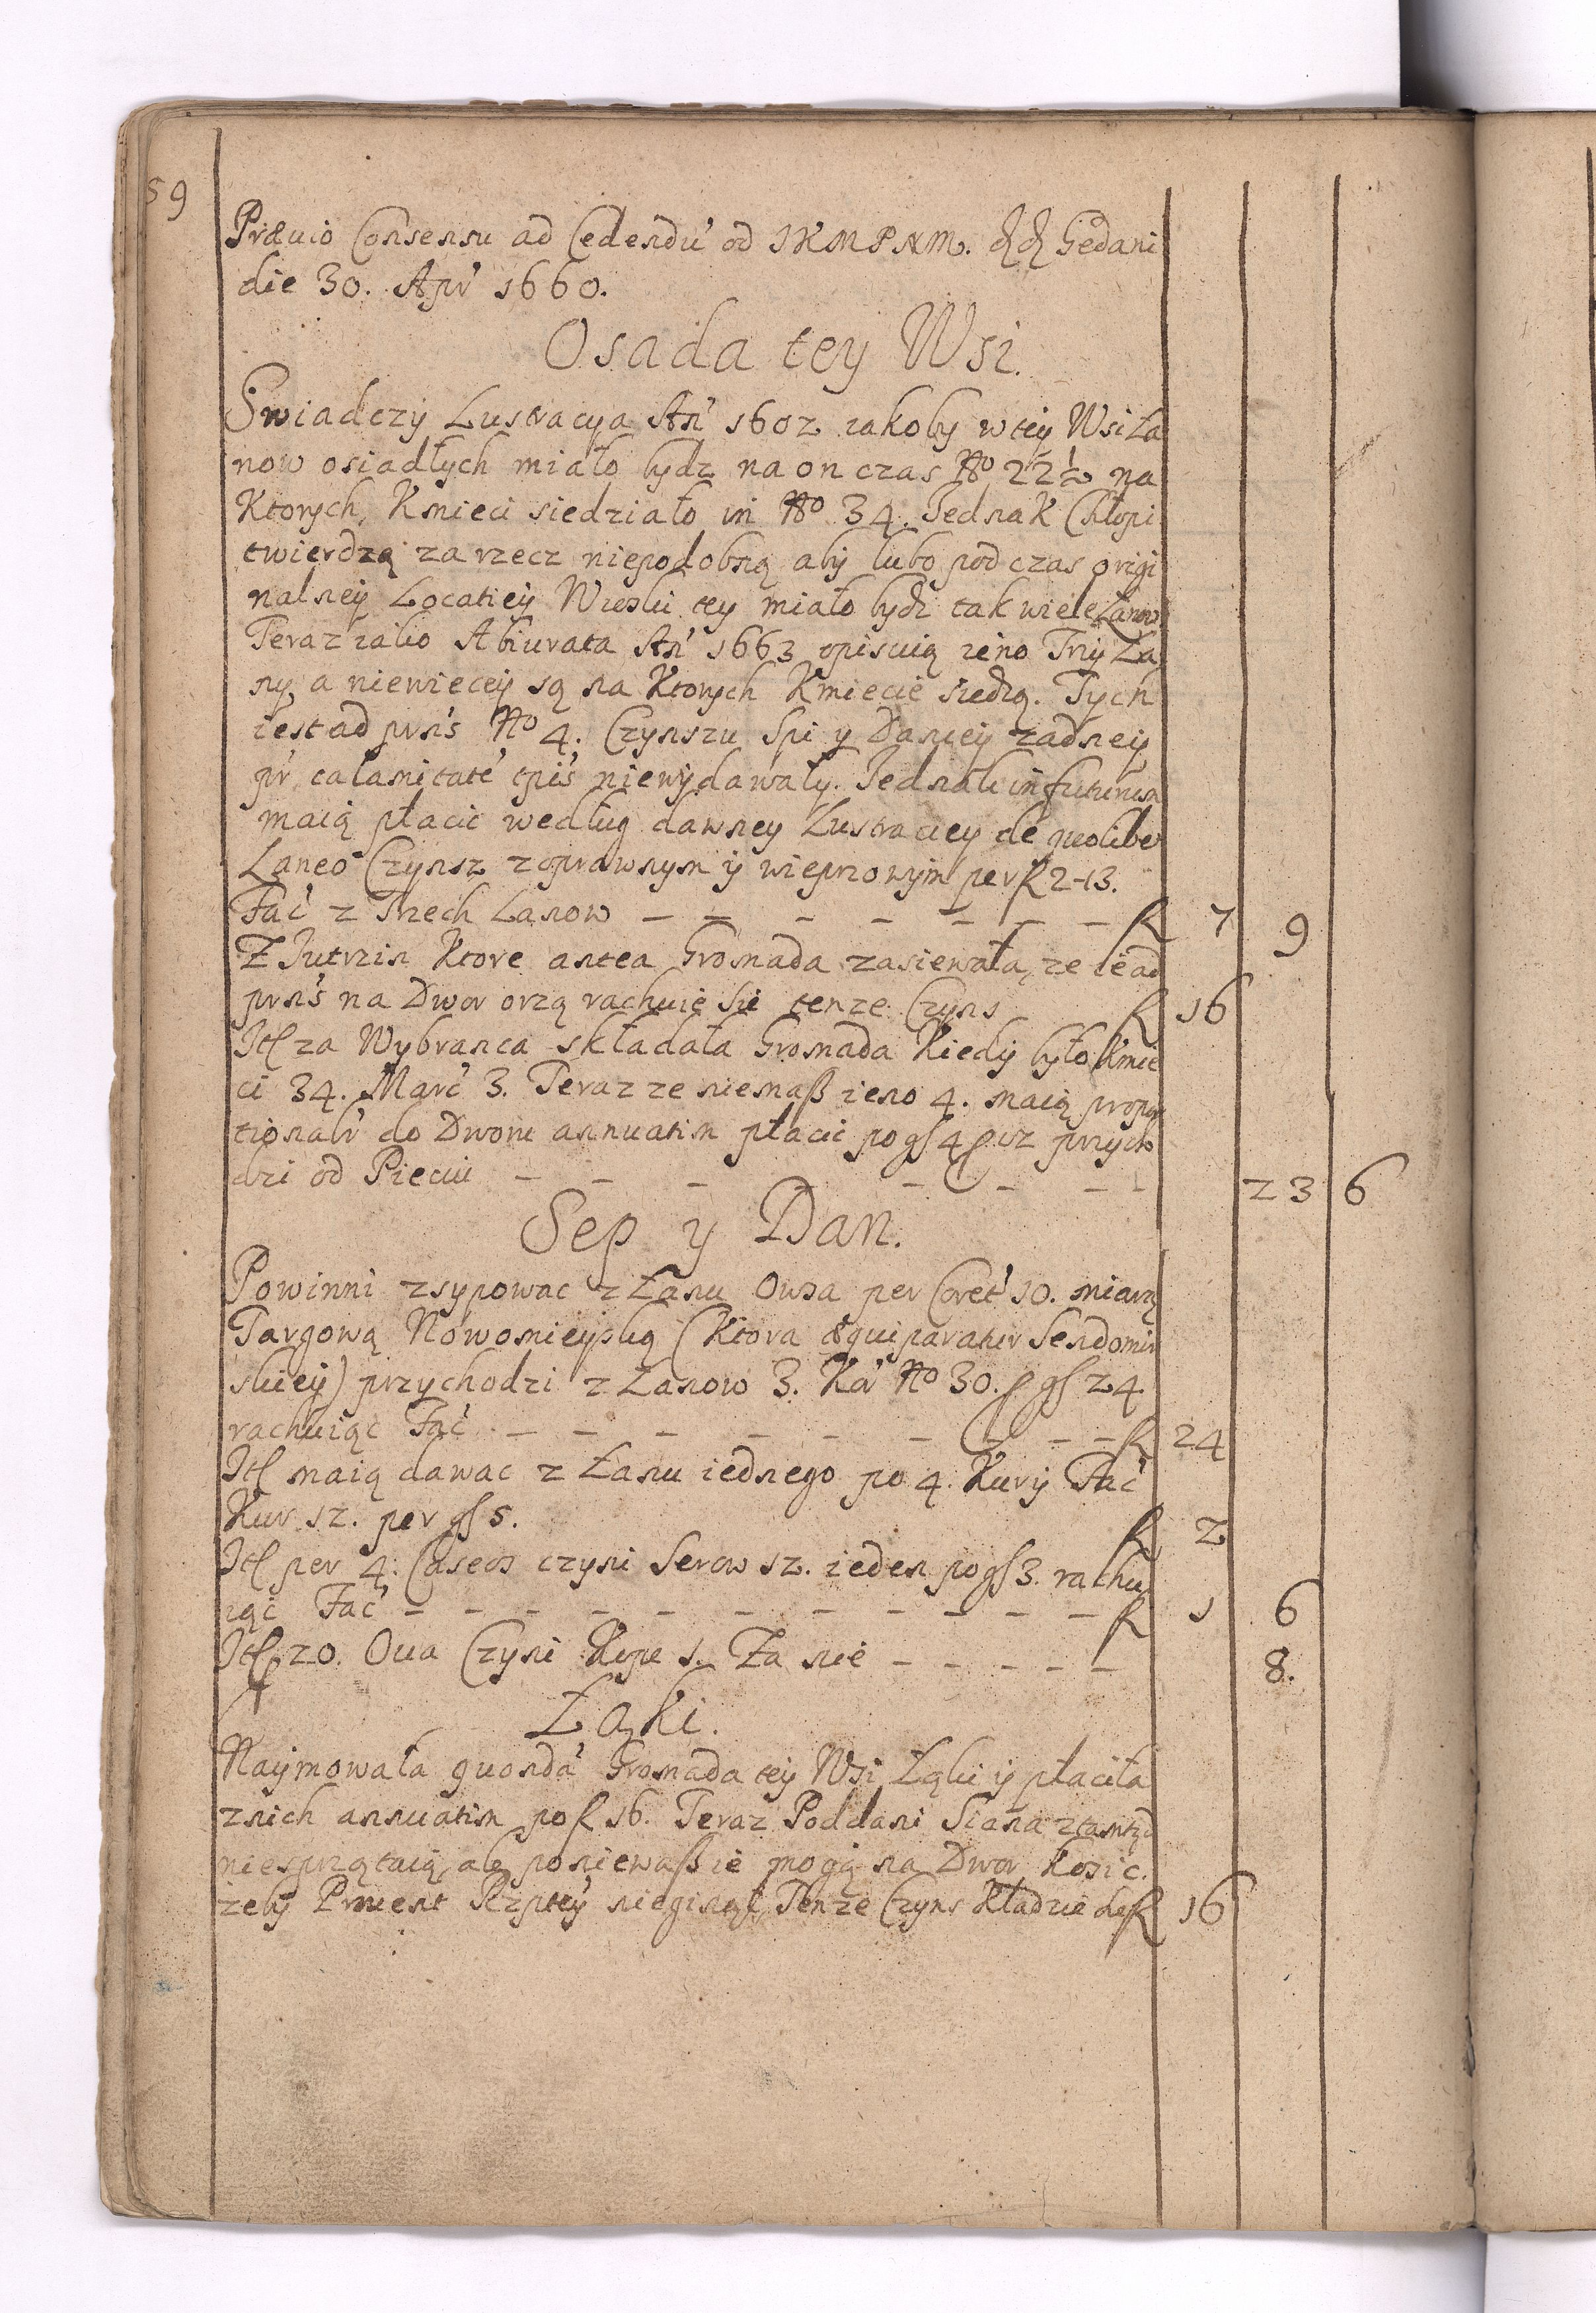 59
Prævio Consensu ad Cedendu' od JKMPNM. dd Gedani
die 30. Apr' 1660.
Osada tey Wsi.
Swiadczÿ Lustracya An' 1602 iakoby w teÿ Wsi Ła
now osiadłych miało bydz na on czas No 22½ na
Ktorych Kmieci siedziało in No 34. Jednak Chłopi
twierdzą za rzecz niepodobną abÿ lubo pod czas origi
nalneÿ Locatieÿ Wioski tey miało bydz tak wiele Łanow
Teraz iako Abiurata An' 1663 opisuią ieno Trzÿ Ła
ny a niewieceÿ są na Ktorych Kmiecie siedzą. Tych
iest ad prns No 4. Czynszu Spi y Daniey zadneÿ
pr' calamitate' tpis niewÿdawały. Jednak in futurum
maią płacic według dawney Lustraciey de quolibet
Laneo Czynsz z oprawnym ÿ wieprzowÿm per f 2-13.
Fac' z Trzech Lanow — — — — — — — f 7 9
Z Jutrzin Ktore antea Gromada zasiewała, ze ie ad
prns na Dwor orzą rachuie sie tenze Czyns f 16
Jtt za Wybranca składała Gromada Kiedÿ było Kmie
ci 34. Marc' 3. Teraz ze niemaß ieno 4. maią propor
tionalr' do Dworu annuatim płacic po gß 4 przych
dzi od Pieciu — — — — — — — 23 6
Sep ÿ Dan.
Powinni zsypowac z Łanu Owsa per Coret' 10. miarą
Targową Nowomieyską (Ktora æquiparatur Sendomir
skieÿ) przychodzi z Łanow 3. Kor' No 30. p gß 24
rachuiąc Fac' — — — — — — — — f 24
Jtt maią dawac z Łanu iednego po 4. Kurÿ Fac'
Kur 12. per gß 5. f 2
Jtt per 4. Caseos czyni Serow 12. ieden po gß 3. rachu
iąc Fac' — — — — — — — — — — f 1 6
Jtt 20. Oua Czyni Kope 1. Za nie — — — — — 8.
Łąki.
Naÿmowała quonda' Gromada teÿ Wsi Łąki ÿ płaciła
z nich annuatim po f 16. Teraz Poddani Siana ztamtąd
niesprzątaią, ale poniewaß ie mogą na Dwor kosic.
zebÿ Prouent Rzpteÿ nieginął, Tenze Czyns Kładzie sie f 16